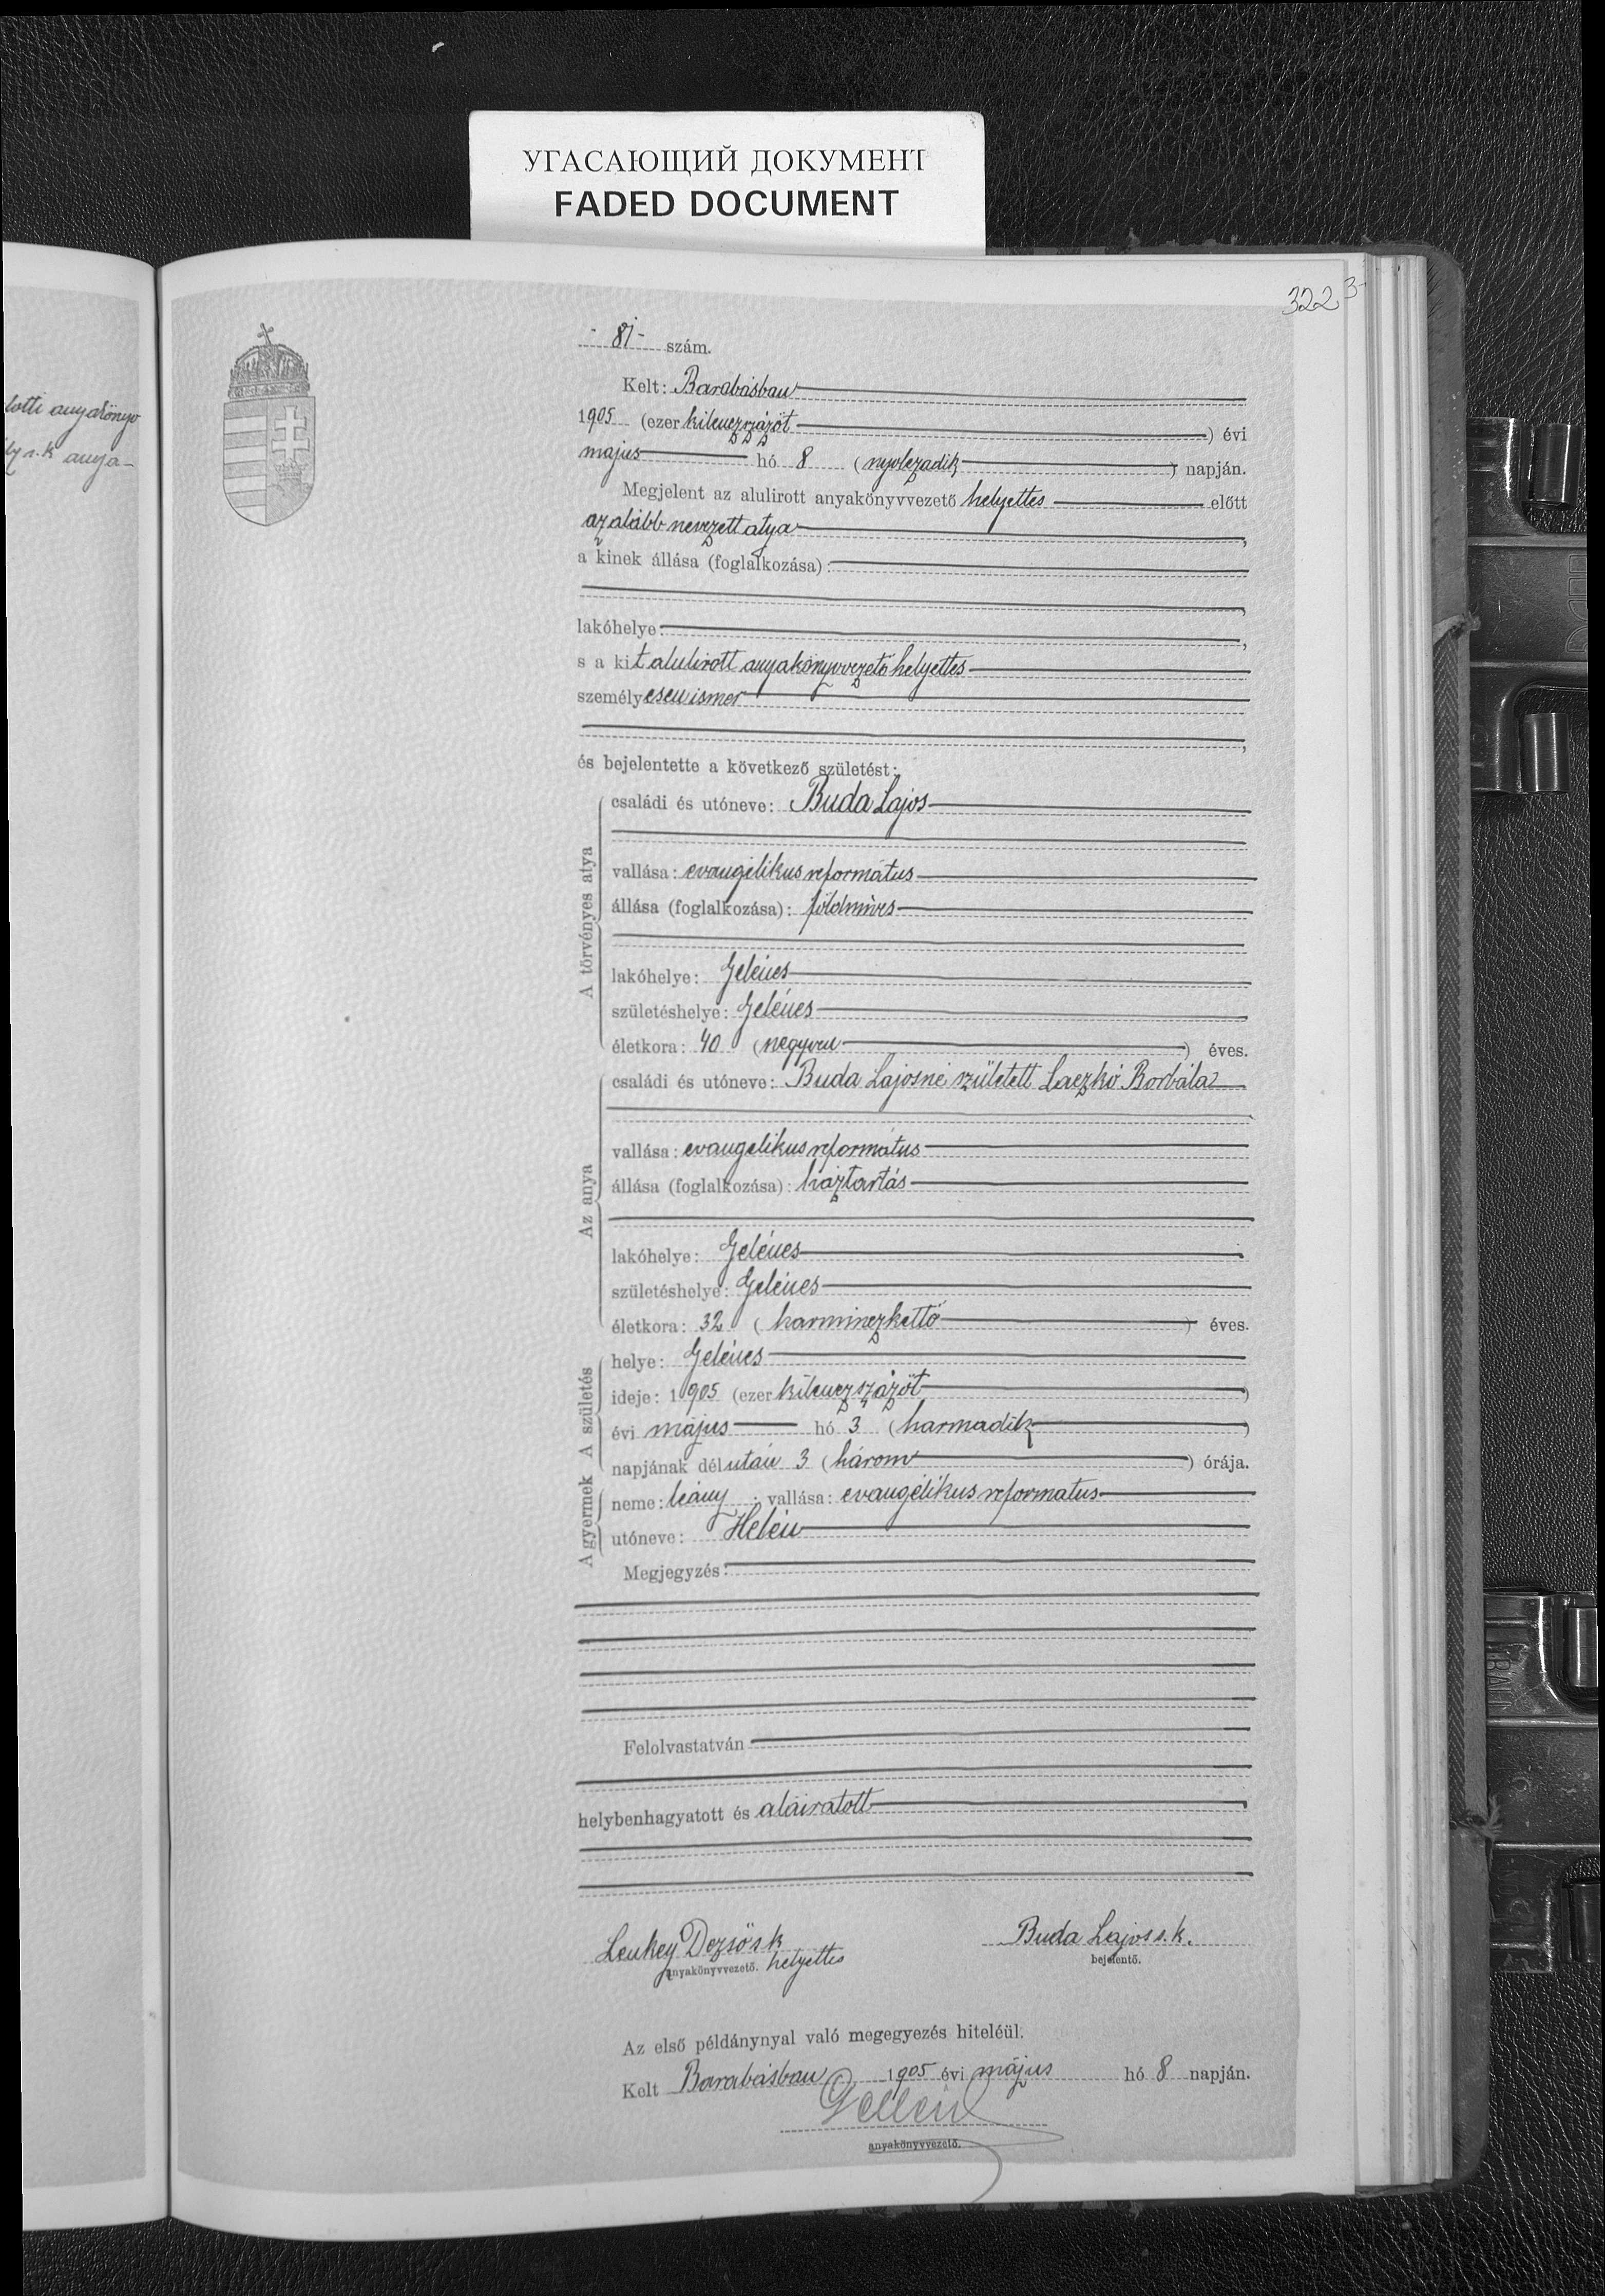 УГАСАЮЩИЙ ДОКУМЕНТ
FADED DOCUMENT
322
lotti anyakönyv
s.k anya-
- 81 - szám.
Kelt: Barabásban
1905 (ezer kilenczszázöt) évi
május hó 8 (nyolczadik) napján.
Megjelent az alulirott anyakönyvvezető helyettes előtt
az alább nevezett atya,
a kinek állása (foglalkozása):
,
lakóhelye: ,
s a kit alulirott anyakönyvvezető helyettes
személyesen ismer
,
és bejelentette a következő születést:
A törvényes atya
családi és utóneve: Buda Lajos
vallása: evangélikus református
állása (foglalkozása): földmives
lakóhelye: Gelénes
születéshelye: Gelénes
életkora: 40 (negyven) éves.
Az anya
családi és utóneve: Buda Lajosné született Laczkó Borbála
vallása: evangelikus református
állása (foglalkozása): háztartás
lakóhelye: Gelénes
születéshelye: Gelénes
életkora: 32 (harminczkettő) éves.
A születés
helye: Gelénes
ideje: 1905 (ezer kilenczszázöt)
évi május hó 3 (harmadik)
napjának délután 3 (három) órája.
A gyermek
neme: leány; vallása: evangélikus reformatus
utóneve: Helén
Megjegyzés:
Felolvastatván
helybenhagyatott és aláiratott
Lenkey Dezső s.k. Buda Lajos s.k.
anyakönyvvezető. helyettes bejelentő.
Az első példánynyal való megegyezés hiteléül.
Kelt Barabásban 1905 évi május hó 8 napján.
anyakönyvvezető.